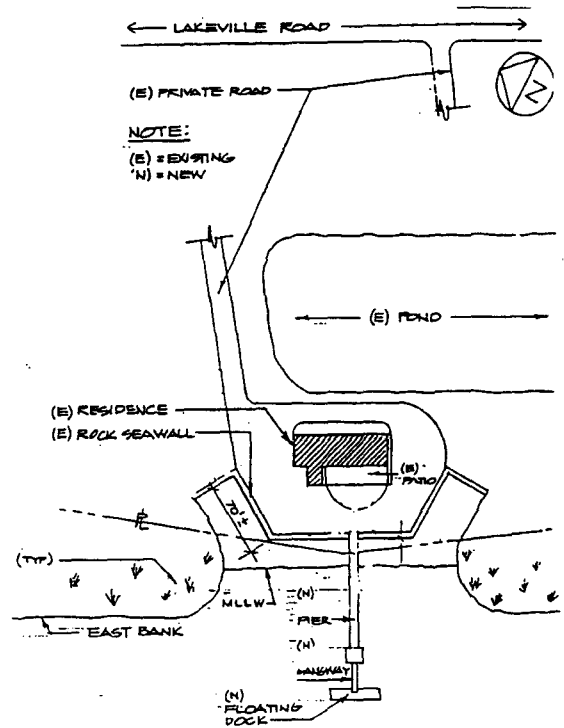 LAKEVILLE ROAD
(E) PRIVATE ROAD
N
NOTE:
(E) = EXISTING
'N) = NEW
(E) POND
(E) RESIDENCE
(E) ROCK SEAWALL
(E)
PATIO
70'±
PL
(TYP)
MLLW
(N)
PIER
EAST BANK
(N)
GANGWAY
(N)
FLOATING
DOCK